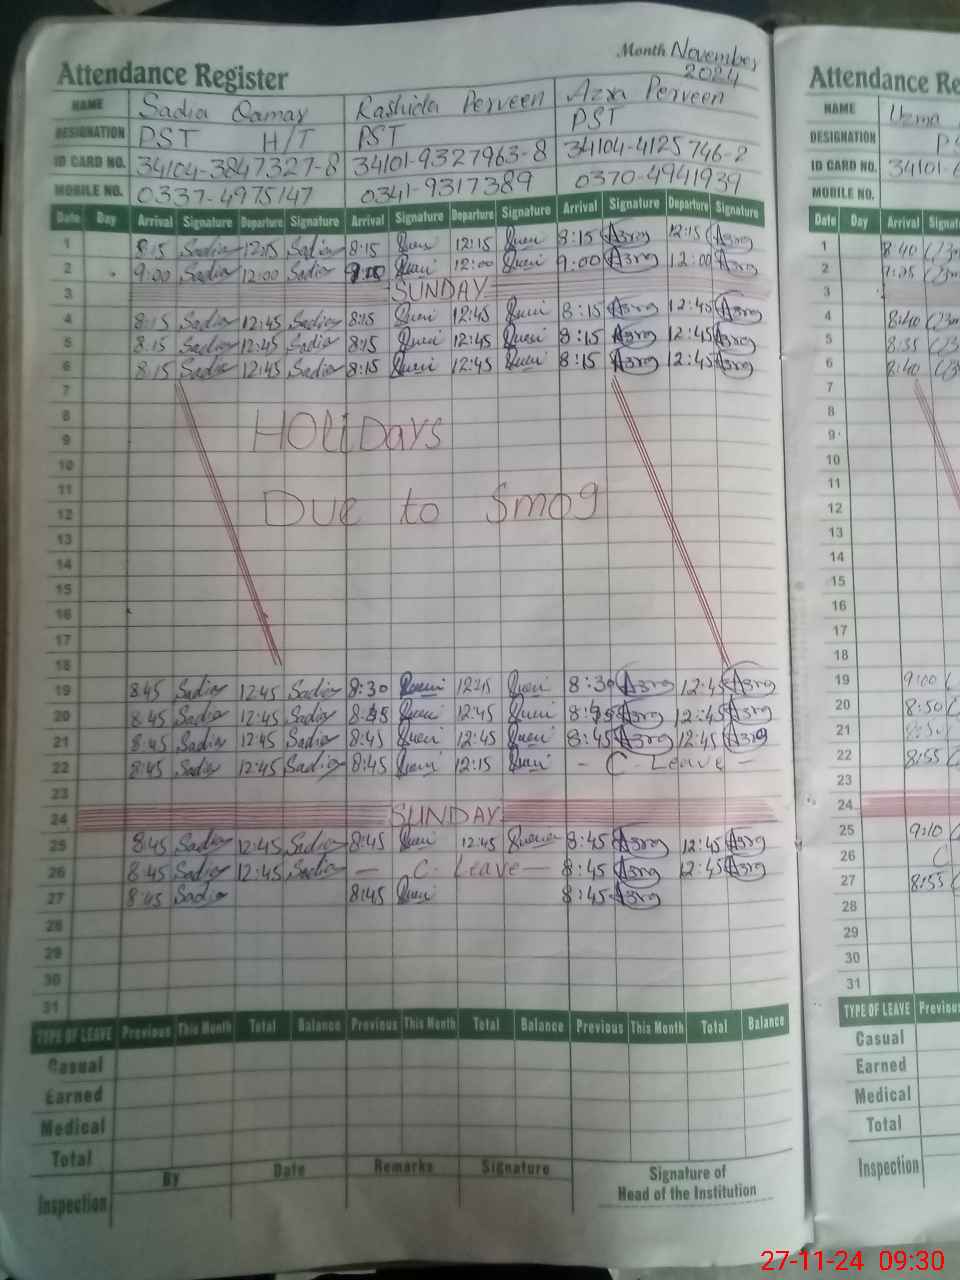 Attendance Register
Month November
2024
NAME Sadia Qamar Rashida Perveen Azra Perveen
DESIGNATION PST H/T PST PST
ID CARD NO. 34104-3847327-8 34101-9327963-8 34104-4125746-2
MOBILE NO. 0337-4975147 0341-9317389 0370-4941939
Date Day Arrival Signature Departure Signature Arrival Signature Departure Signature Arrival Signature Departure Signature
1 8:15 Sadia 12:15 Sadia 8:15 12:15 8:15 12:15
2 9:00 Sadia 12:00 Sadia 12:00 9:00 12:00
3 SUNDAY
4 8:15 Sadia 12:45 Sadia 8:15 12:45 8:15 12:45
5 8:15 Sadia 12:45 Sadia 8:15 12:45 8:15 12:45
6 8:15 Sadia 12:45 Sadia 8:15 12:45 8:15 12:45
7
8 HOLIDAYS
9
10
11
12 Due to Smog
13
14
15
16
17
18
19 8:45 Sadia 12:45 Sadia 8:30 8:30 12:45
20 8:45 Sadia 12:45 Sadia 12:45 12:45
21 8:45 Sadia 12:45 Sadia 8:45 12:45 8:45 12:45
22 8:45 Sadia 12:45 Sadia 8:45 12:15 - C. Leave -
23
24 SUNDAY
25 8:45 Sadia 12:45 Sadia 8:45 12:45 8:45 12:45
26 8:45 Sadia 12:45 Sadia - C. Leave - 8:45 12:45
27 8:45 Sadia 8:45 8:45
28
29
30
31
TYPE OF LEAVE Previous This Month Total Balance Previous This Month Total Balance Previous This Month Total Balance
Casual
Earned
Medical
Total
Inspection By Date Remarks Signature Signature of
Head of the Institution
Attendance Re
NAME Uzma
DESIGNATION P
ID CARD NO. 34101-
MOBILE NO.
Date Day Arrival Signat
1 8:40
2
3
4 8:40
5 8:35
6 8:40
7
8
9
10
11
12
13
14
15
16
17
18
19 9:00
20 8:50
21
22 8:55
23
24
25 9:10
26 C
27 8:55
28
29
30
31
TYPE OF LEAVE Previous
Casual
Earned
Medical
Total
Inspection
27-11-24 09:30